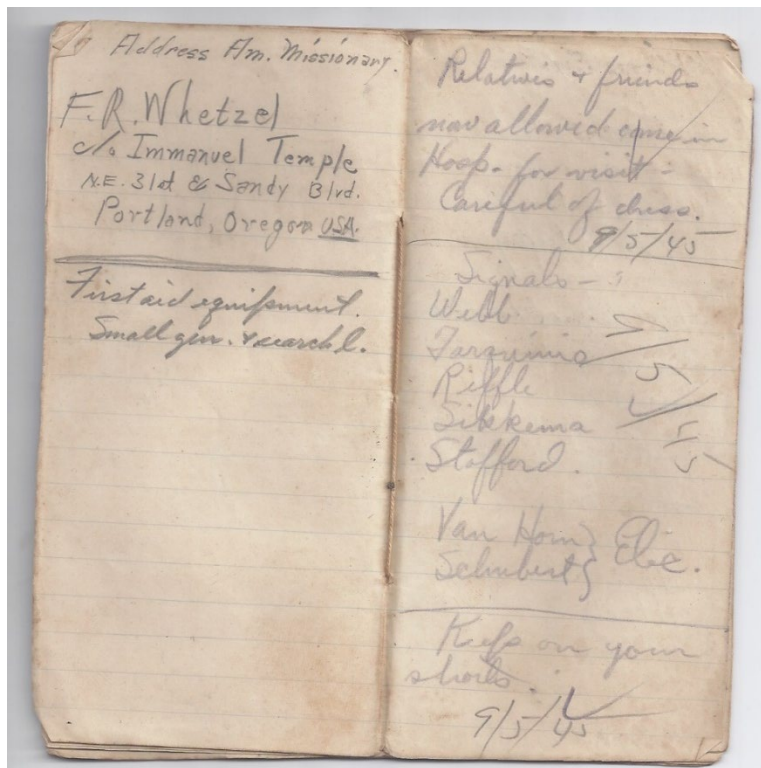 Address Am. Missionary.
F.R. Whetzel
c/o Immanuel Temple
N.E. 31st & Sandy Blvd.
Portland, Oregon USA.
First aid equipment.
Small gen. & search l.
Relatives & friends
now allowed come in
Hosp. for visit -
Careful of dress.
9/5/45
Signals -
Webb
Tarquinio
Riffle
Sikkema
Stofford.
9/5/45
Van Horn } Elec.
Schubert
Keep on your
shorts.
9/5/45